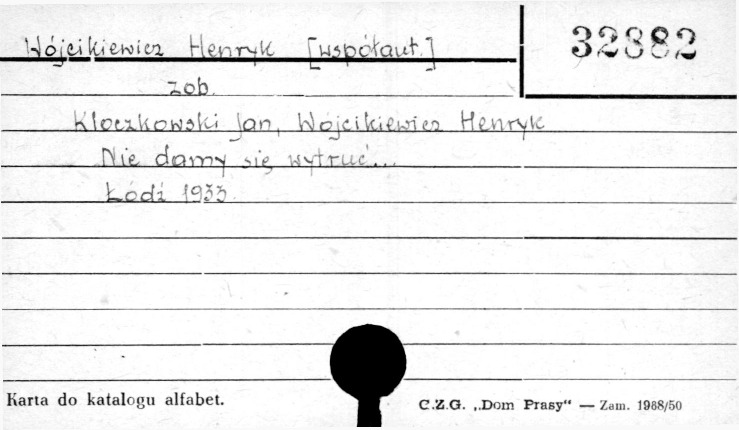 Wójcikiewicz Henryk [współaut.]
32882
zob.
Kłoczkowski Jan, Wójcikiewicz Henryk
Nie damy się wytruć...
Łódź 1933.
Karta do katalogu alfabet.
C.Z.G. „Dom Prasy“ — Zam. 1968/50